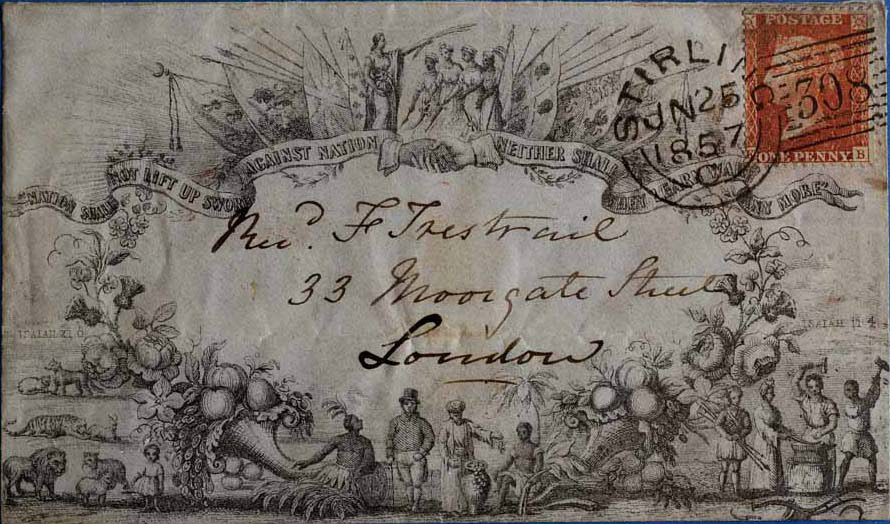 POSTAGE
308
ONE PENNY B
STIRLI
JN 25
1857
C
"NATION SHALL NOT LIFT UP SWORD AGAINST NATION NEITHER SHALL THEY LEARN WAR ANY MORE"
Revd. F Trestrail
33 Moorgate Street
London
ISAIAH 11 4